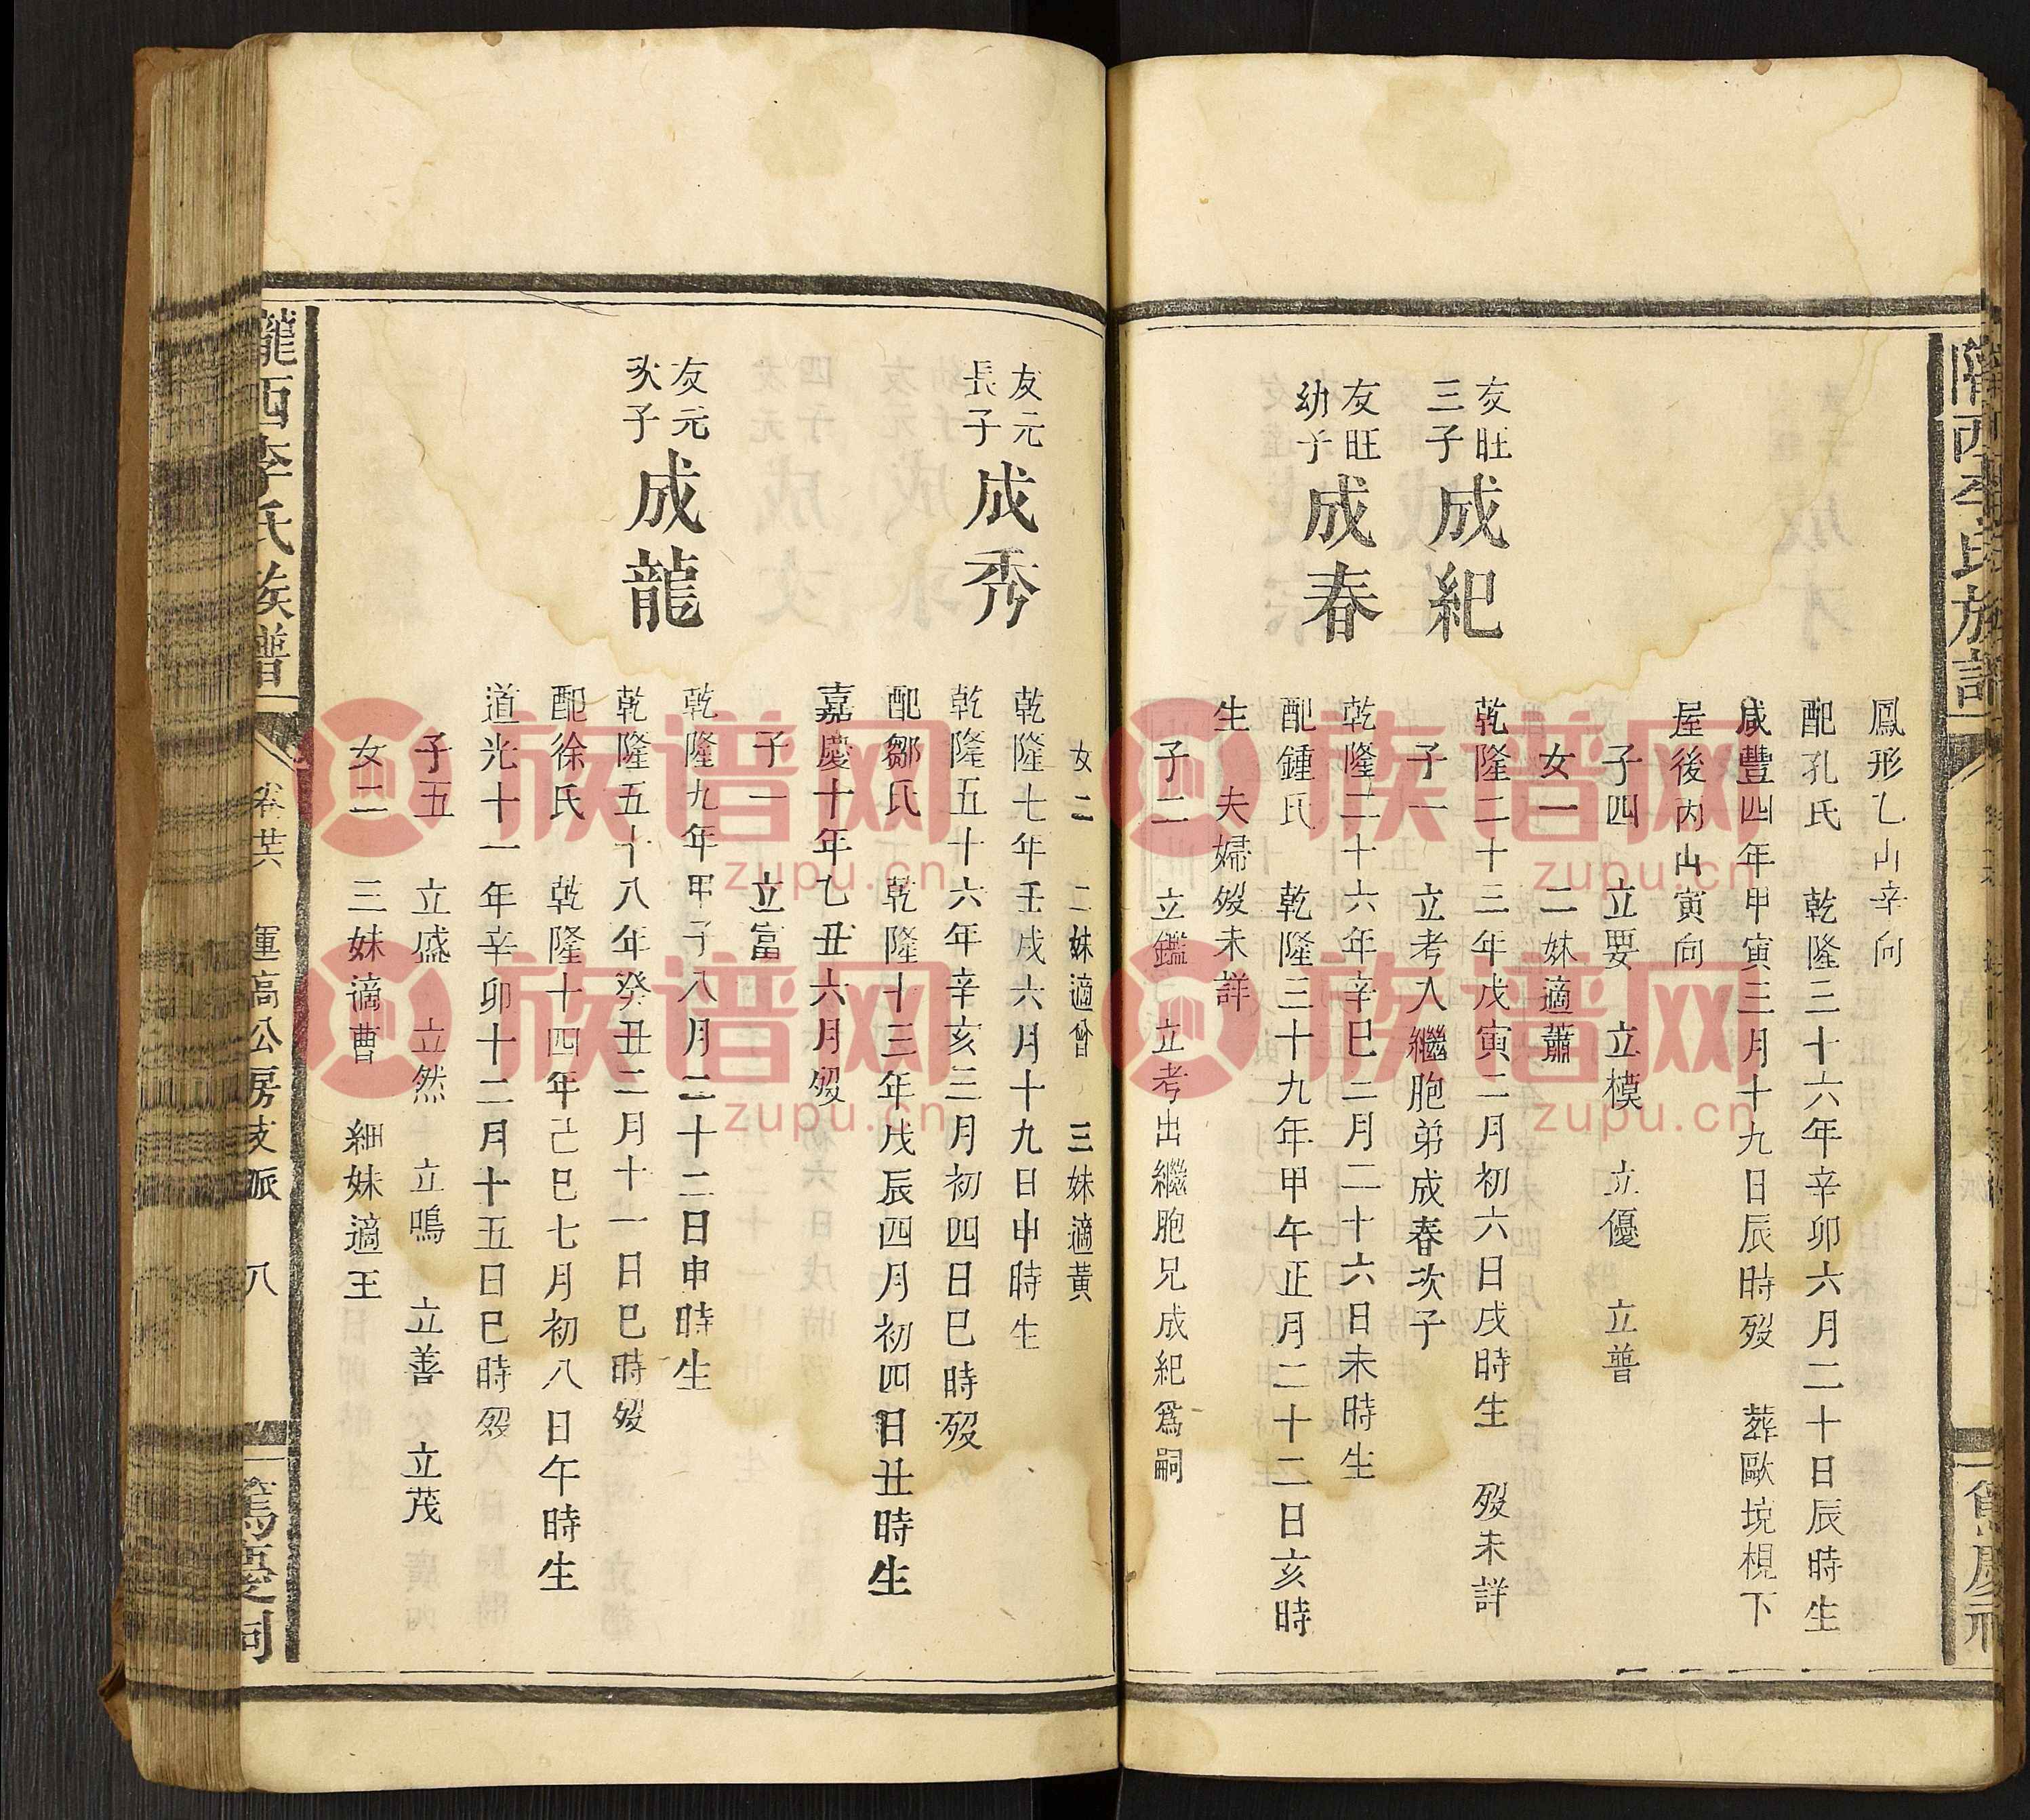 鳳形乙山辛向
配孔氏　乾隆三十六年辛卯六月二十日辰時生
咸豐四年甲寅三月十九日辰時歿　葬歐垸梘下
屋後丙山寅向
子四　立要　立模　立優　立普
女一　二妹適蕭
友旺三子　成紀　乾隆二十三年戊寅二月初六日戌時生　歿未詳
子一　立考入繼胞弟成春次子
友旺幼子　成春　乾隆二十六年辛巳二月二十六日未時生
配鍾氏　乾隆三十九年甲午正月二十二日亥時
生　夫婦歿未詳
子二　立鑑　立考出繼胞兄成紀爲嗣
女二　二妹適曾　三妹適黃
友元長子　成秀　乾隆七年壬戌六月十九日申時生
乾隆五十六年辛亥三月初四日巳時歿
配鄒氏　乾隆十三年戊辰四月初四日丑時生
嘉慶十年乙丑六月歿
子一　立富
友元次子　成龍　乾隆九年甲子八月二十二日申時生
乾隆五十八年癸丑二月十一日巳時歿
配徐氏　乾隆十四年己巳七月初八日午時生
道光十一年辛卯十二月十五日巳時歿
子五　立盛　立然　立鳴　立善　立茂
女二　三妹適曹　細妹適王
隴西李氏族譜　卷廿六　運高公房支派　八　篤慶祠
隴西李氏族譜
族谱网
zupu.cn
族谱网
zupu.cn
族谱网
zupu.cn
族谱网
zupu.cn